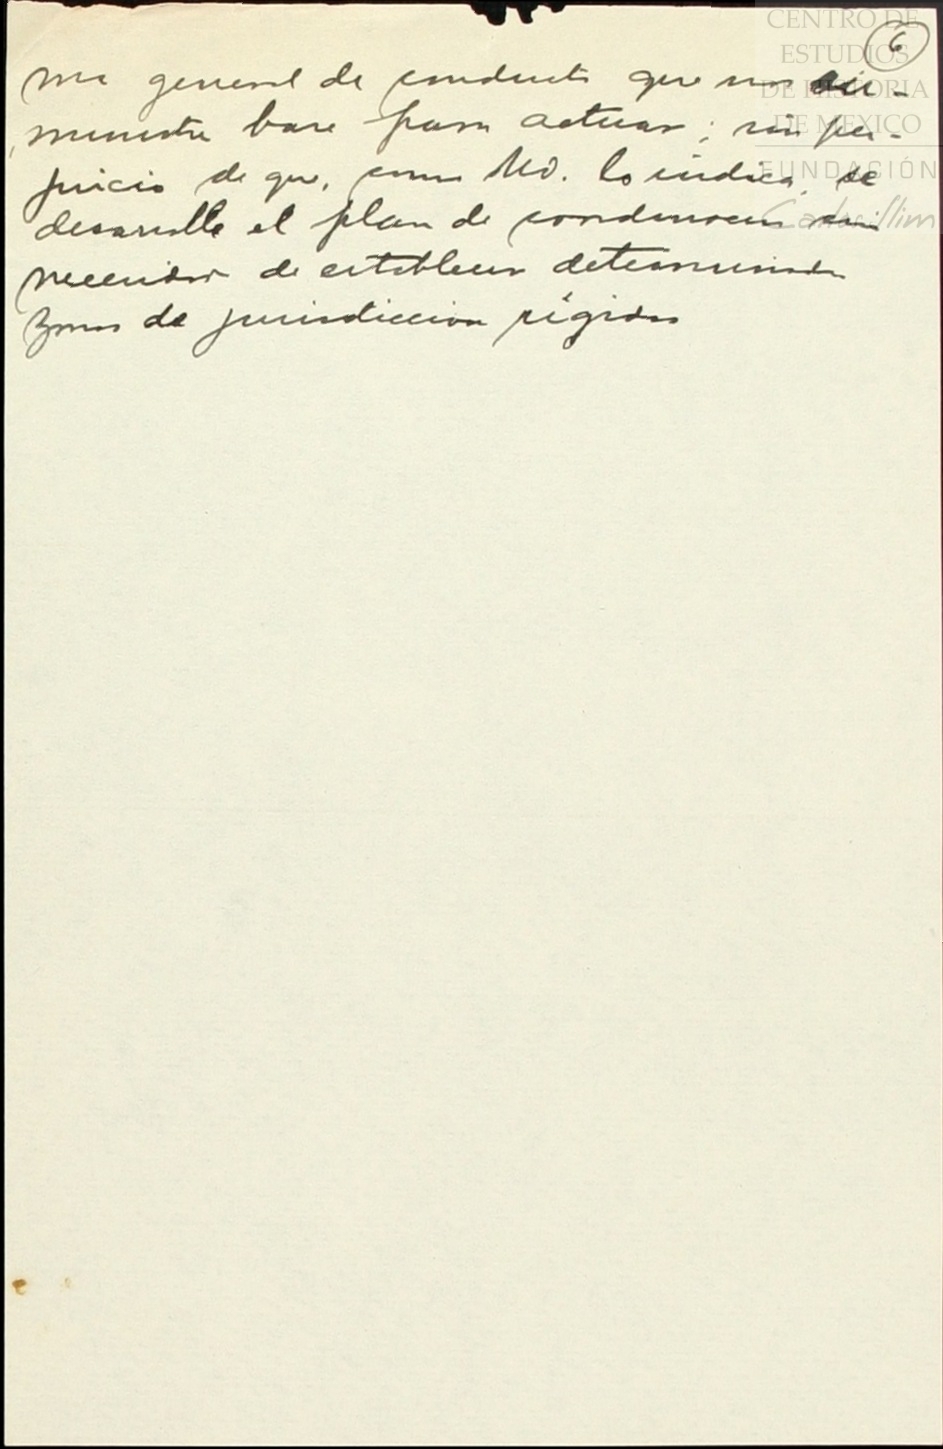 CENTRO DE
ESTUDIOS
DE HISTORIA
DE MÉXICO
FUNDACIÓN
Carlos Slim
6
ma general de conducta que nos su-
ministre base para actuar; sin per-
juicio de que, como Ud. lo indica, se
desarrolle el plan de condiciones sin
necesidad de establecer determinadas
zonas de jurisdiccion rígidas